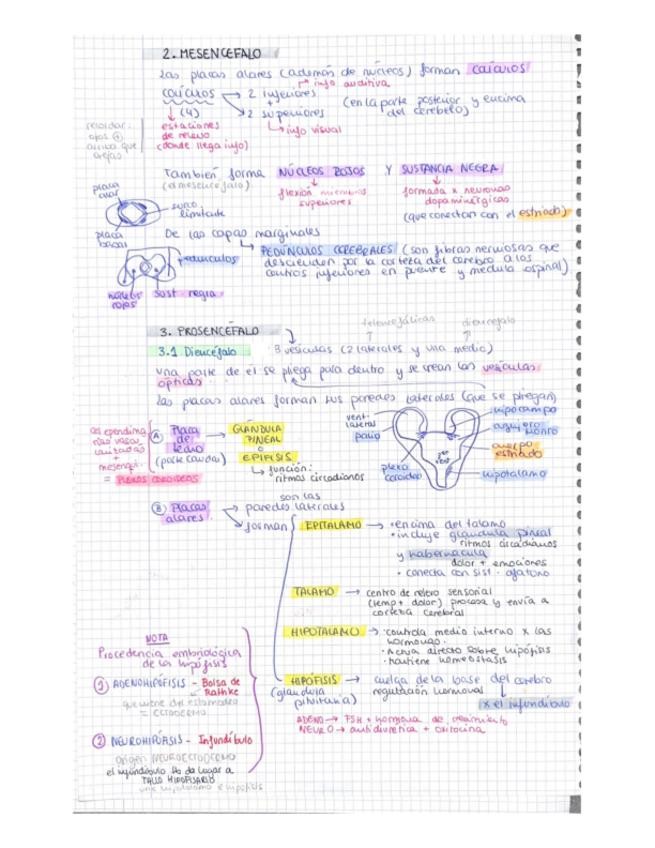 2. MESENCÉFALO
Las placas alares (además de núcleos) forman COLÍCULOS
COLÍCULOS → 2 inferiores → info auditiva
+
(4) 2 superiores → info visual
(en la parte posterior y encima
del cerebelo)
estaciones
de relevo
(donde llega info)
recordar:
ojos
arriba que
orejas
También forma NÚCLEOS ROJOS Y SUSTANCIA NEGRA
(el mesencéfalo)
flexión miembros
superiores
formada x neuronas
dopaminérgicas
(que conectan con el estriado)
placa
alar
surco
limitante
placa
basal
De las capas marginales
PEDÚNCULOS CEREBRALES (son fibras nerviosas que
descienden por la corteza del cerebro a los
centros inferiores en puente y medula espinal)
pedúnculos
núcleos
rojos
sust. negra
3. PROSENCÉFALO
telencefálicas
diencéfalo
3.1 Diencéfalo
3 vesículas (2 laterales y una media)
Una parte de él se pliega para dentro y se crean las vesículas
ópticas
las placas alares forman sus paredes laterales (que se pliegan)
A Placa
del
techo
(parte caudal)
→ GLÁNDULA
PINEAL
o
EPÍFISIS
función:
ritmos circadianos
cels ependima
+
mesenqui.
= PLEXOS COROIDEOS
vent.
lateral
palio
plexo
coroideo
hipocampo
agujero
monro
cuerpo
estriado
hipotálamo
B Placas
alares
son las
→ paredes laterales
forman
EPITÁLAMO → • encima del tálamo
• incluye glándula pineal
ritmos circadianos
y habenacula
dolor + emociones
• conecta con sist. olfatorio
TÁLAMO → centro de relevo sensorial
(temp + dolor) procesa y envía a
corteza cerebral
HIPOTÁLAMO → • controla medio interno x las
hormonas.
• Manda directo sobre hipófisis
• mantiene homeostasis
HIPÓFISIS → cuelga de la base del cerebro
(glándula
pituitaria)
regulación hormonal
x el infundíbulo
ADENO → FSH + hormona de crecimiento
NEURO → antidiurética + oxitocina
NOTA
Procedencia embriológica
de la hipófisis
1 ADENOHIPÓFISIS - Bolsa de
Rathke
que viene del estomodeo
= ECTODERMO
2 NEUROHIPÓFISIS - Infundíbulo
origen NEUROECTODERMO
el infundíbulo da lugar a
TALLO HIPOFISARIO
une hipotálamo e hipófisis